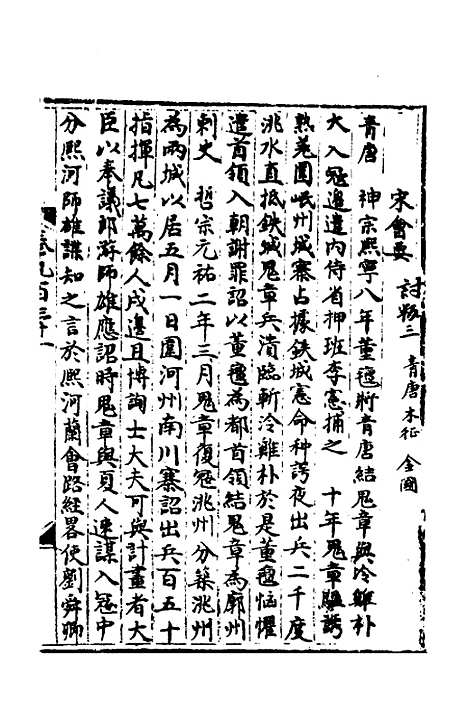 宋會要
討叛三　青唐　木征　金國
青唐　神宗熙寧八年董氊將青唐結鬼章與冷雞朴
大入寇邊遣內侍省押班李憲捕之　十年鬼章驅誘
熟羌圍岷州城寨占據鉄城憲命种諤夜出兵二千度
洮水直抵鉄城鬼章兵潰臨斬冷雞朴於是董氊恼懼
遣首領入朝謝罪詔以董氊為都首領結鬼章為廓州
刺史　哲宗元祐二年三月鬼章復寇洮州分築洮州
為兩城以居五月一日圍河州南川寨詔出兵百五十
指揮凡七萬餘人戍邊且博詢士大夫可與計畫者大
臣以奉議郎游師雄應詔時鬼章與夏人連謀入寇中
分熙河師雄諜知之言於熙河蘭會路經畧使劉舜卿